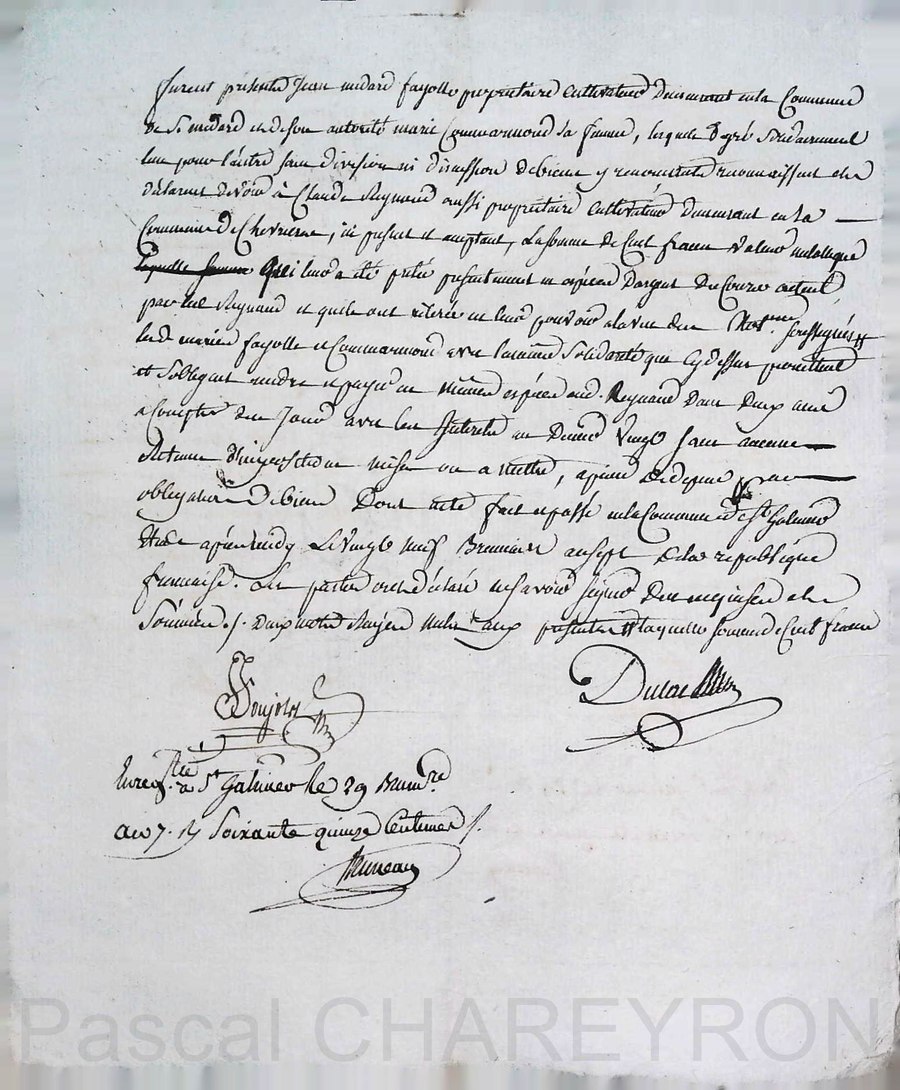 furent présents Jean médard fayolle propriétaire cultivateur demeurant en la Commune
de St médard et de son autorité marie Commarmond sa femme, lesquels de gré solidairement
l'un pour l'autre sans division ni discussion de biens y renoncant reconnaissent et
déclarent devoir à Claude Reynaud aussi propriétaire cultivateur demeurant en la
Commune de Chevrieres, ici présent et acceptant, la somme de Cent francs valeur métallique
laquelle somme qui leur a été prêtée présentement en espèces d'argent du Cours actuel
par led Reynaud et qu'ils ont retirée en leur pouvoir a la vue des Not.res soussignés //
les d mariés fayolle et Commarmond avec la même solidarité que cy dessus promettent
et s'obligent rendre et payer en mêmes espèces aud. Reynaud dans deux ans
a Compter de ce Jour avec les Intérêts au denier vingt sans aucune
Retenue d'impositions mises ou a mettre, a peine de dépens par
obligation de biens Dont acte fait et passé en la Commune de St Galmier
Etude après midy Le vingt neuf Brumaire an sept de la république
française. Les parties ont déclaré ne savoir signer de ce enquises et
Sommées ./. Deux mots Rayés nuls aux présentes // laquelle somme de Cent francs
Dulac
Enreg.tré a St Galmier le 29 Brum.re
an 7. Soixante quinze Centimes ./.
Bruneau
Pascal CHAREYRON